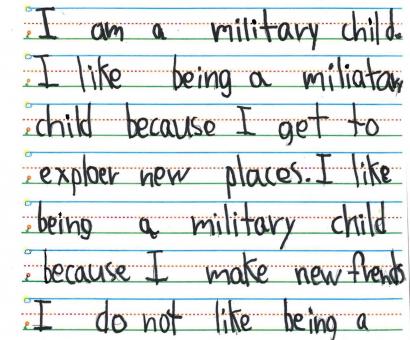 I am a military child.
I like being a miliatary
child because I get to
exploer new places. I like
being a military child
because I make new frends
I do not like being a